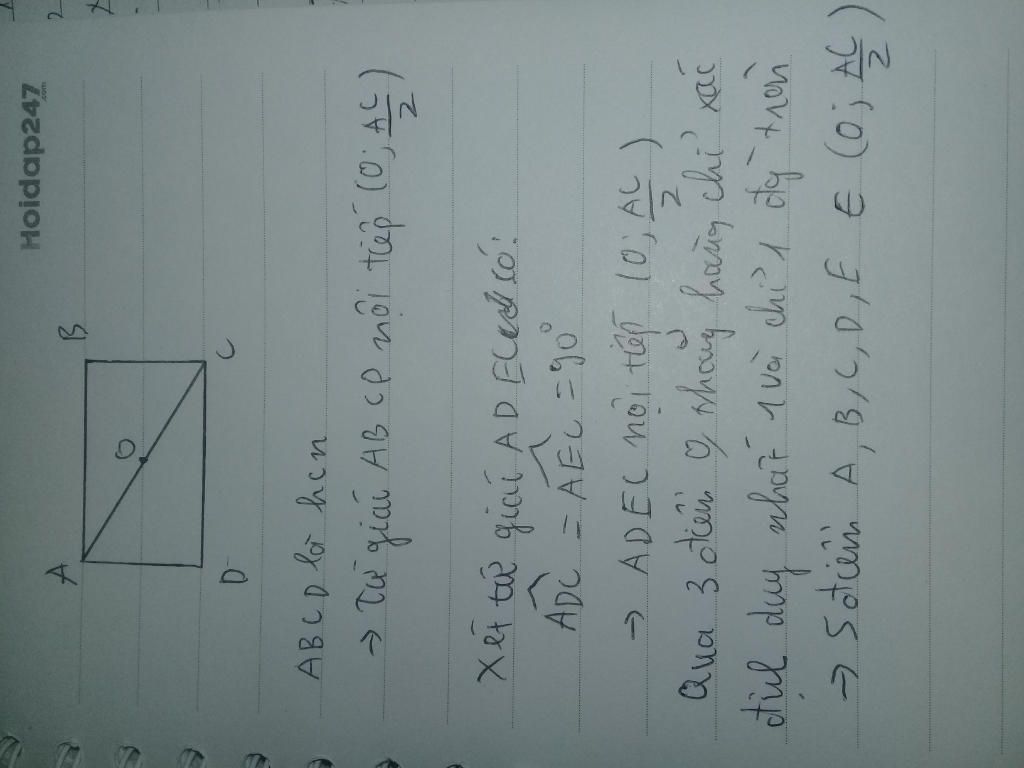 Hoidap247
.com
A B
O
D C
ABCD là hcn
→ Tứ giác ABCD nội tiếp (O; AC/2)
Xét tứ giác ADEC có:
ADC = AEC = 90°
→ ADEC nội tiếp (O; AC/2)
Qua 3 điểm ko thẳng hàng chỉ xác
định duy nhất 1 và chỉ 1 đg tròn
→ 5 điểm A, B, C, D, E ∈ (O; AC/2)